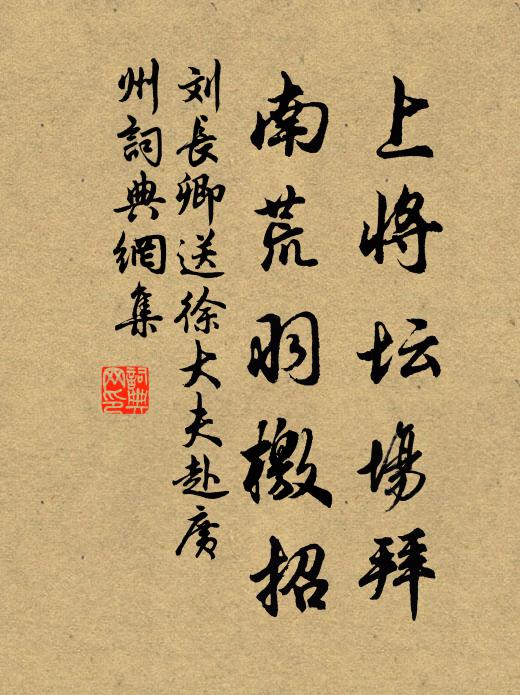 上将坛場拜
南荒羽檄招
刘長卿送徐大夫赴廣
州詞典網集
詞典網印